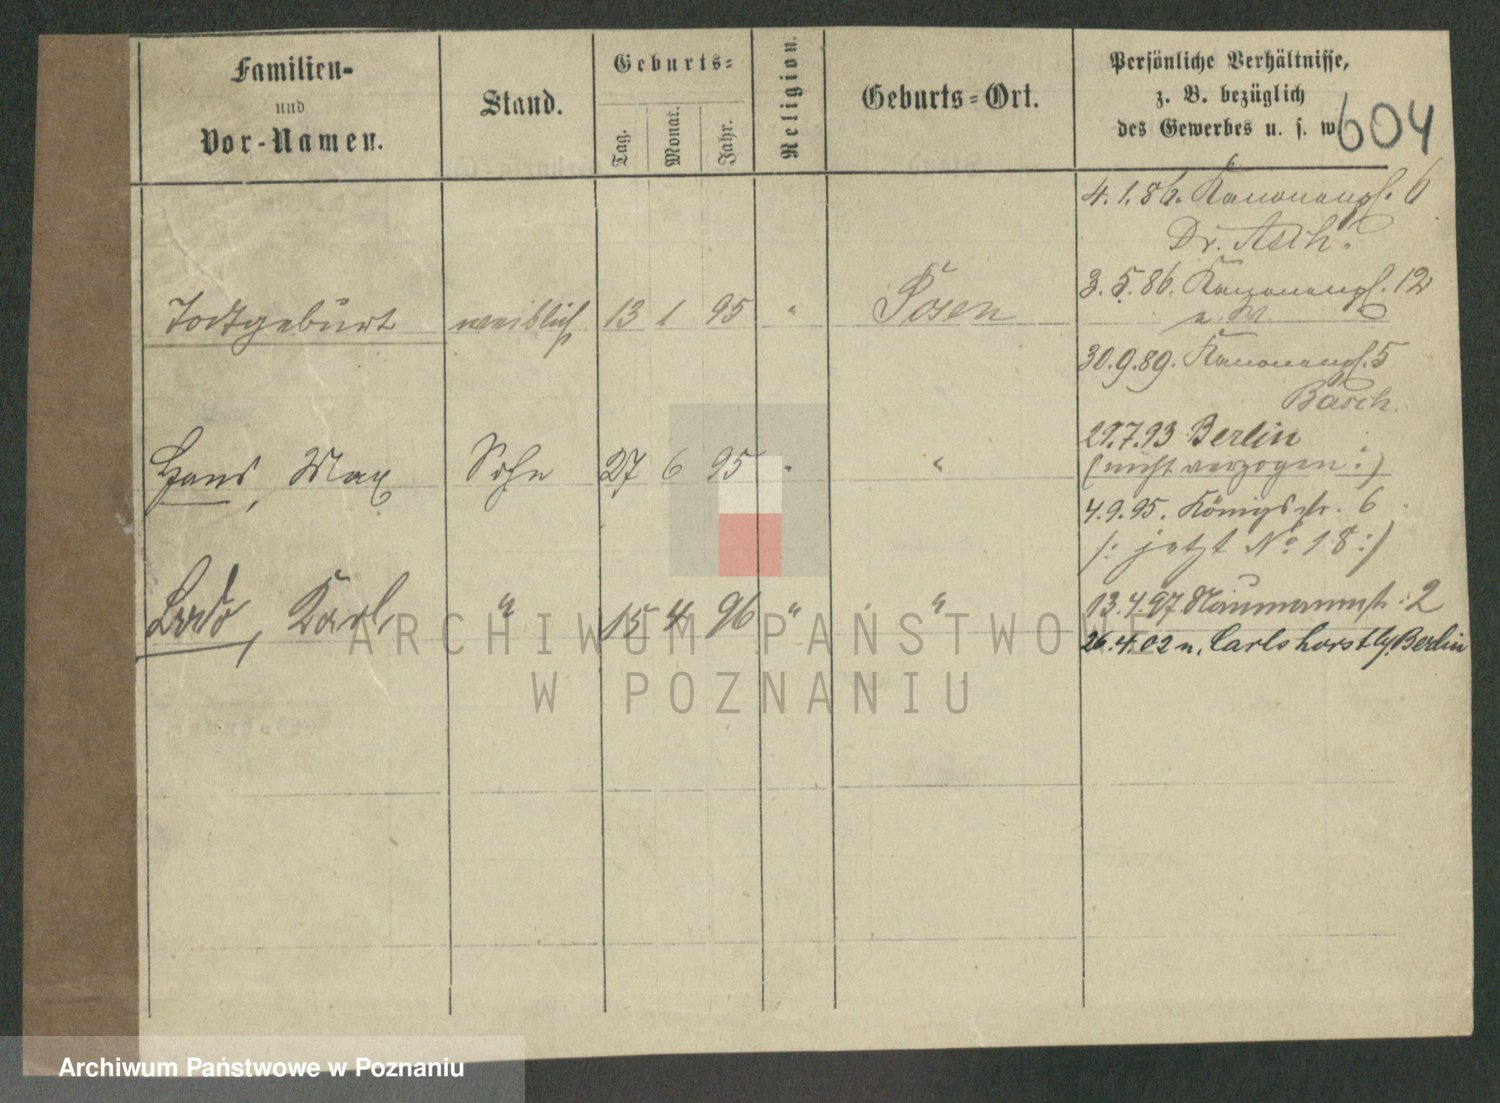 Familien-
und
Vor-Namen.
Stand.
Geburts-
Tag.
Monat.
Jahr.
Religion.
Geburts-Ort.
Persönliche Verhältnisse,
z. B. bezüglich
des Gewerbes u. s. w.
604
4.1.86. Kanonenpl. 6
Dr. Asch.
3.5.86. Kanonenpl. 12
Todtgeburt weiblich 13 1 95 " Posen
30.9.89. Kanonenpl. 5
Basch.
29.7.93 Berlin
Hans, Max Sohn 27 6 95 " "
(nicht verzogen:)
4.9.95. Königsstr. 6
/: jetzt No 18:/
Karl " 15 4 96 " "
13.4.97 Naumannstr. 2
26.4.02 n. Carlshorst b/ Berlin
ARCHIWUM PAŃSTWOWE
W POZNANIU
Archiwum Państwowe w Poznaniu